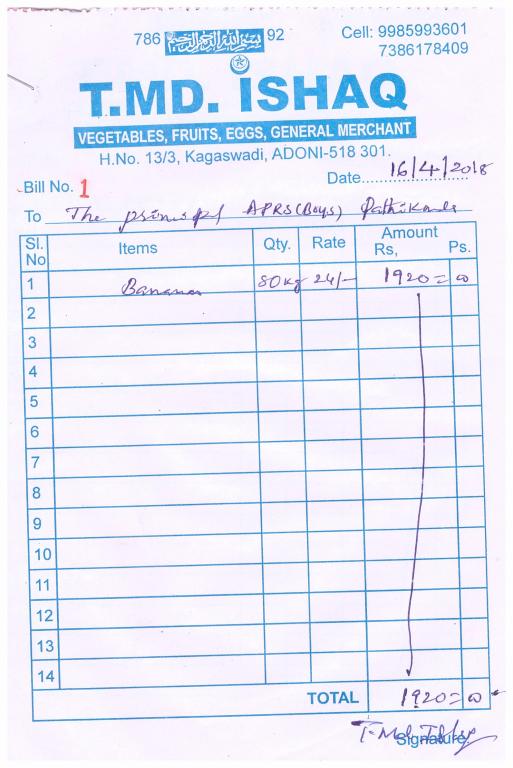 786 بسم الله الرحمن الرحيم 92
Cell: 9985993601
7386178409
T.MD. ISHAQ
VEGETABLES, FRUITS, EGGS, GENERAL MERCHANT
H.No. 13/3, Kagaswadi, ADONI-518 301.
Bill No. 1 Date 16/4/2018
To The principl APRS (Boys)
Sl. No Items Qty. Rate Amount Rs, Ps.
1 Bananas 80 kg 24/- 1920 = 00
2
3
4
5
6
7
8
9
10
11
12
13
14
TOTAL 1920 = 00
Signature